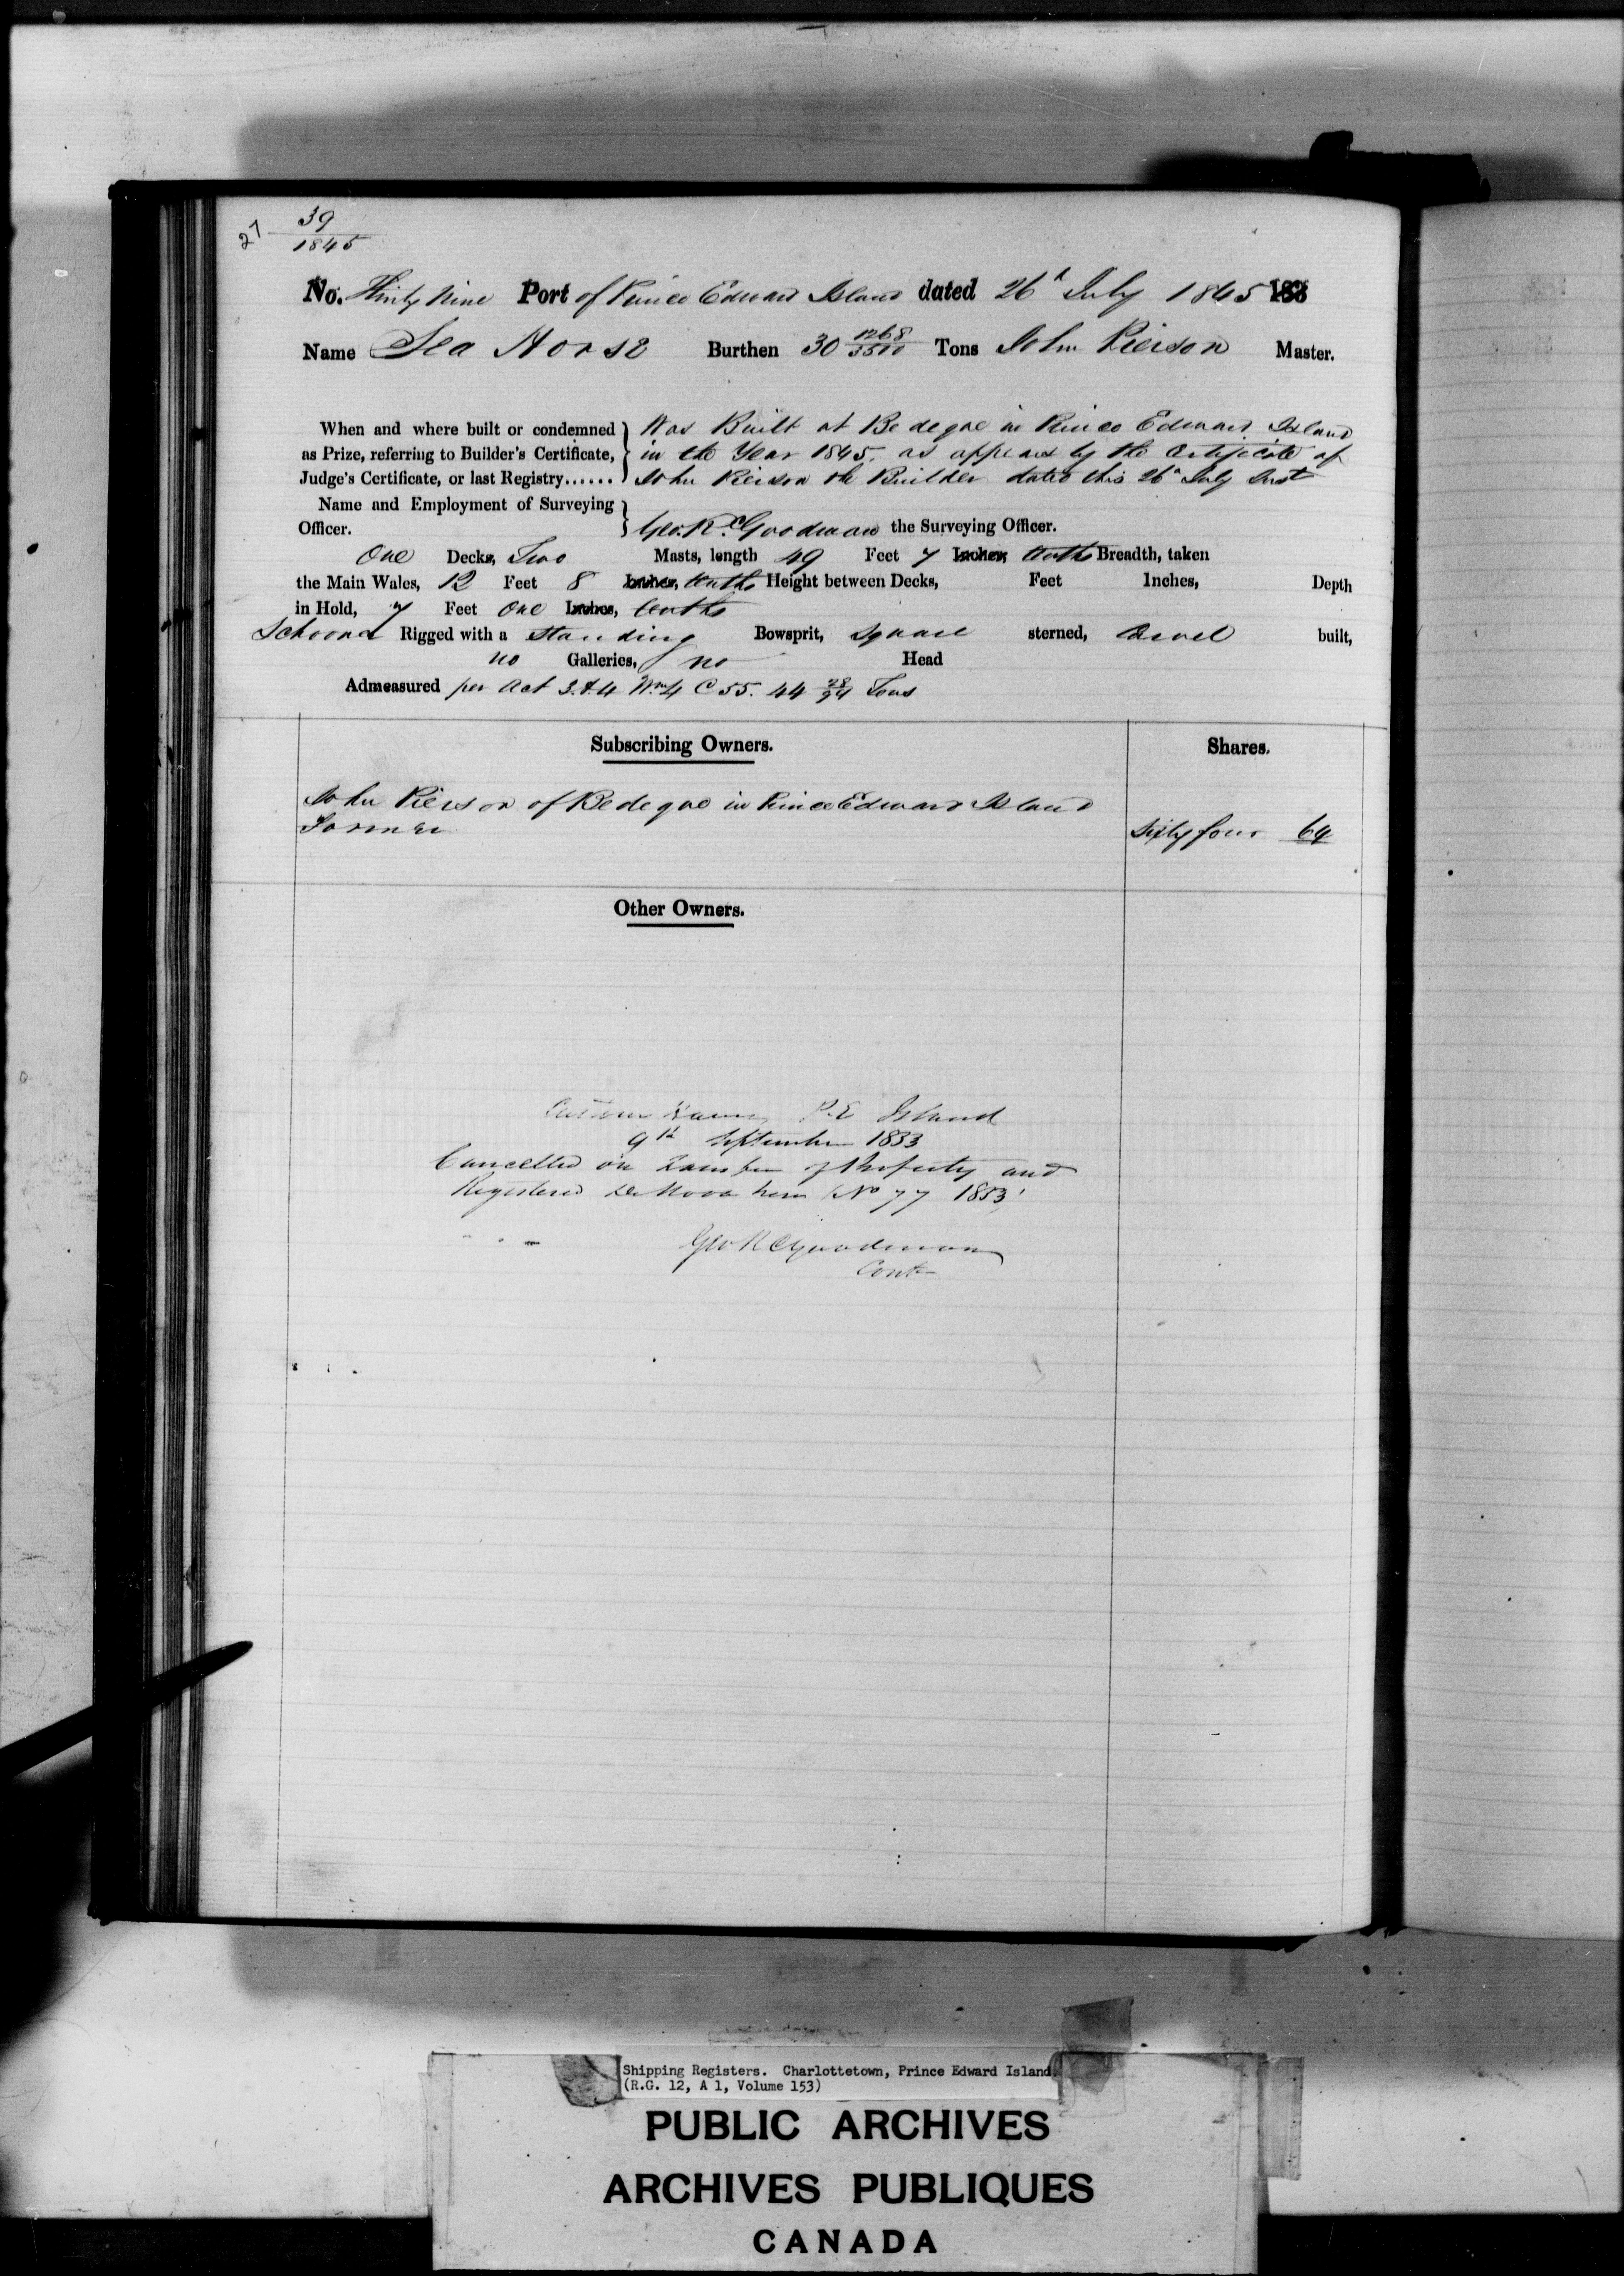 27
39
1845
No. Thirty Nine Port of Prince Edward Island dated 26th July 1845 183
Name Sea Horse Burthen 30 1268/3500 Tons John Pierson Master.
When and where built or condemned Was Built at Bedeque in Prince Edward Island
as Prize, referring to Builder's Certificate, in the Year 1845. as appears by the Certificate of
Judge's Certificate, or last Registry...... John Pierson the Builder dated this 26th July Inst
Name and Employment of Surveying
Officer. Geo. R. C. Goodman the Surveying Officer.
One Decks, Two Masts, length 49 Feet 7 Inches, tenths Breadth, taken
the Main Wales, 12 Feet 8 Inches, tenths Height between Decks, Feet Inches, Depth
in Hold, 7 Feet One Inches, tenths
Schooner Rigged with a Standing Bowsprit, Square sterned, Carvel built,
no Galleries, no Head
Admeasured per Act 3.&.4 Wm 4 C 55. 44 28/94 Tons
Subscribing Owners. Shares.
John Pierson of Bedeque in Prince Edward Island
Farmer Sixty four 64
Other Owners.
Custom House P.E Island
9th September 1853
Cancelled on Transfer of Property and
Registered De Novo here No 77 1853
Geo R C Goodman
Cont
Shipping Registers. Charlottetown, Prince Edward Island.
(R.G. 12, A 1, Volume 153)
PUBLIC ARCHIVES
ARCHIVES PUBLIQUES
CANADA